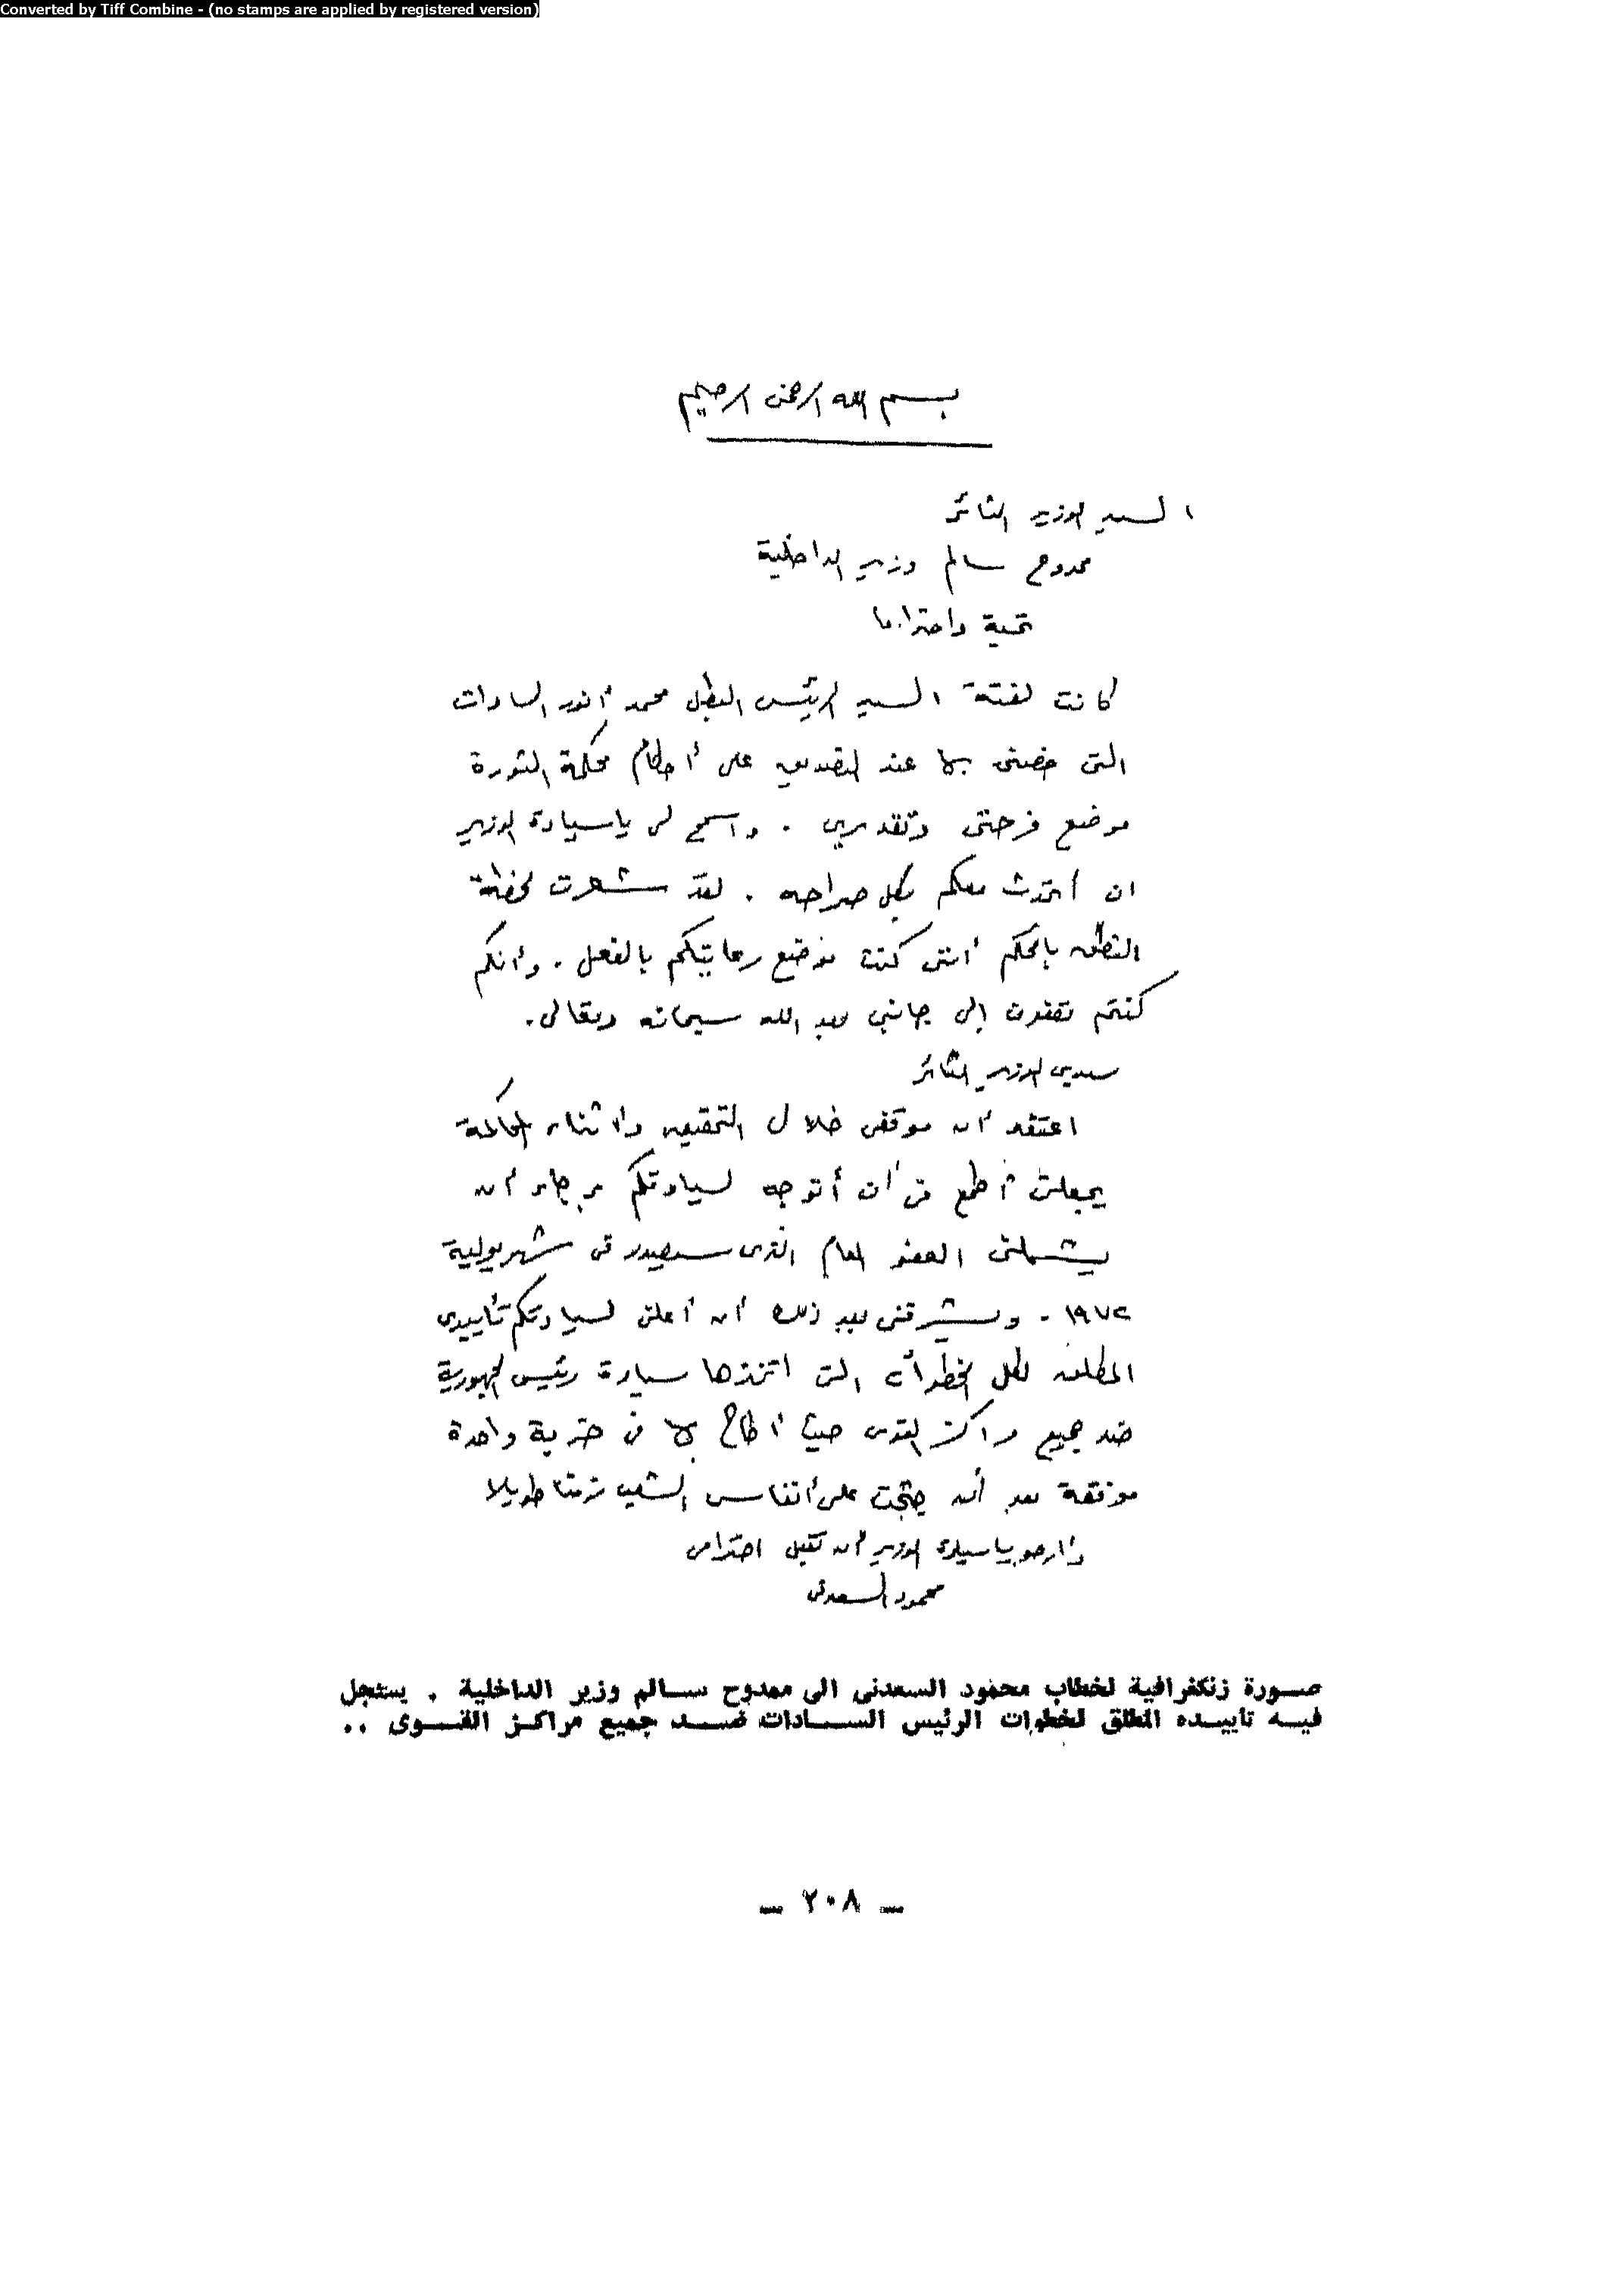 Converted by Tiff Combine - (no stamps are applied by registered version)
بسم الله الرحمن الرحيم
السيد الوزير الثائر
ممدوح سالم وزير الداخلية
تحية واحتراما
كانت لفتة السيد الرئيس البطل محمد أنور السادات
التى خصنى بها عند التصديق على أحكام محكمة الثورة
موضع فرحتى وتقديرى . واسمح لى ياسيادة الوزير
ان أتحدث معكم بكل صراحه . لقد شعرت لحظة
النطق بالحكم أننى كنت موضع رعايتكم بالفعل . وأنكم
كنتم تقفون إلى جانبى بعد الله سبحانه وتعالى .
سيدى الوزير الثائر
اعتقد أن موقفى خلال التحقيق وأثناء المحاكمة
يجعلنى أطمع فى أن أتوجه لسيادتكم برجاء أن
يشملنى العفو العام الذى سيصدر فى شهر يولية
١٩٧٢ . ويشرفنى بعد ذلك أن أعلن لسيادتكم تأييدى
المطلق لكل الخطوات التى اتخذها سيادة رئيس الجمهورية
ضد جميع مراكز القوى حيث أطاح بها فى ضربة واحدة
موفقة بعد أن جثمت على أنفاس الشعب زمنا طويلا
وأرجو ياسيادة الوزير أن تقبل احترامى
محمود السعدنى
صورة زنكفرافية لخطاب محمود السعدنى الى ممدوح سالم وزير الداخلية . يسجل
فيه تاييده المطلق لخطوات الرئيس السادات ضد جميع مراكز القوى ..
ــ ٢٠٨ ــ